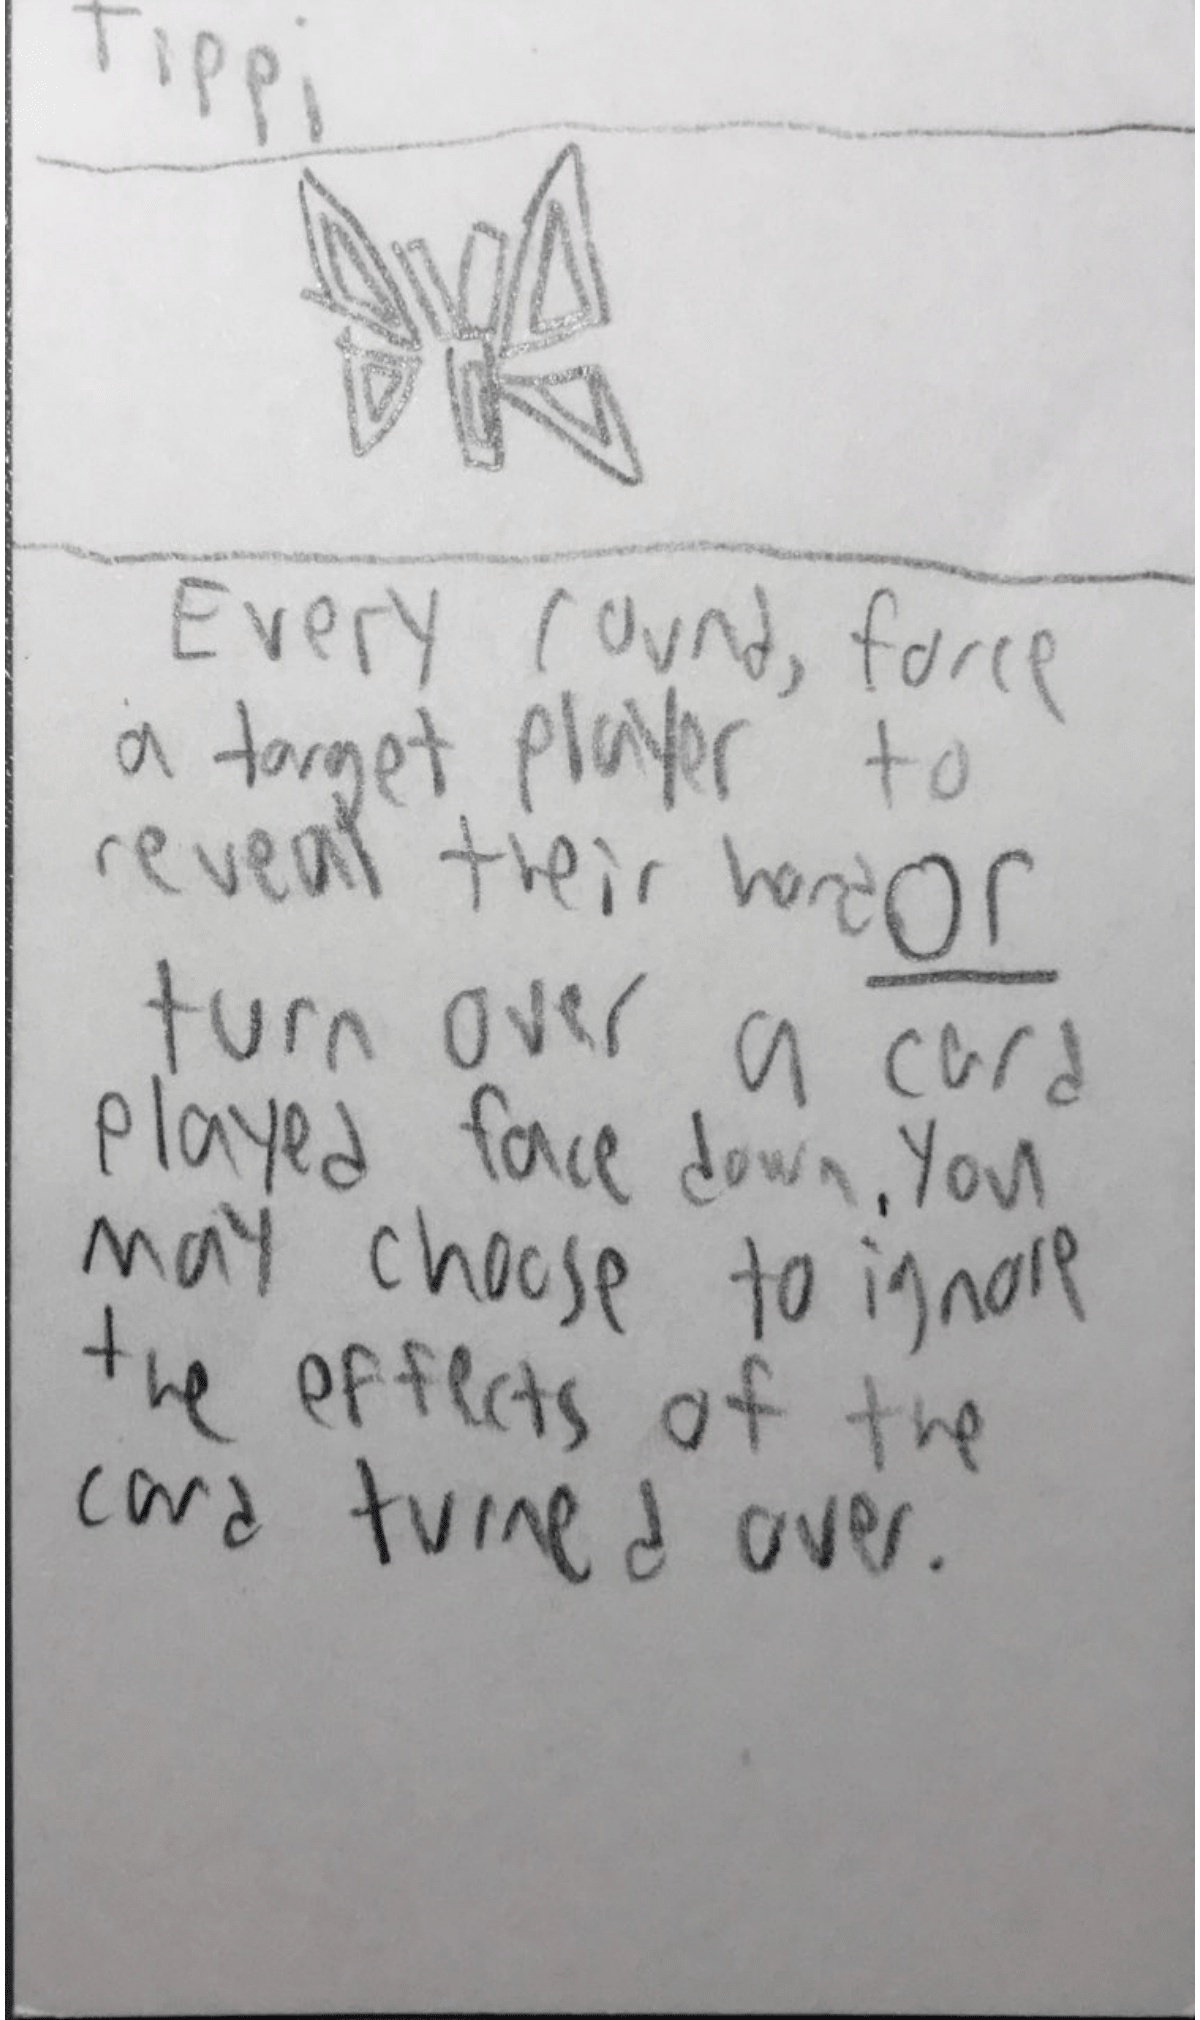 Tippi
Every round, force
a target player to
reveal their hand or
turn over a card
played face down. You
may choose to ignore
the effects of the
card turned over.